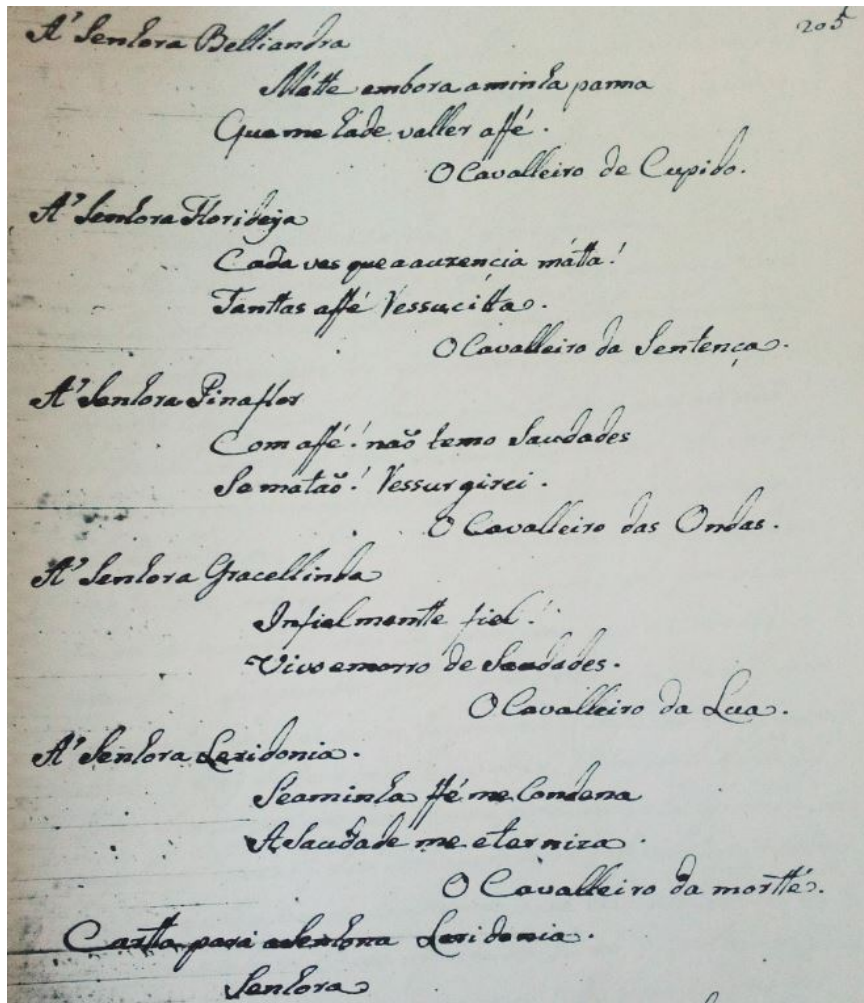 205
A' Senhora Belliandra
Mátte embora a minha panna
Que me hade valler affé.
O Cavalleiro de Cupido.
A' Senhora Florideja
Cada ves que a auzencia mátta!
Tanttas affé Ressucitta.
O Cavalleiro da Sentença.
A' Senhora Pinaflor
Com affé! não temo Saudades
Se matão! Ressurgirei.
O Cavalleiro das Ondas.
A' Senhora Gracellinda
Infielmentte fiel!
Vivo e morro de Saudades.
O Cavalleiro da Lua.
A' Senhora Leridonia.
Se a minha ffé me Condena
A Saudade me eterniza.
O Cavalleiro da mortté.
Cartta para a Senhora Leridonia.
Senhora